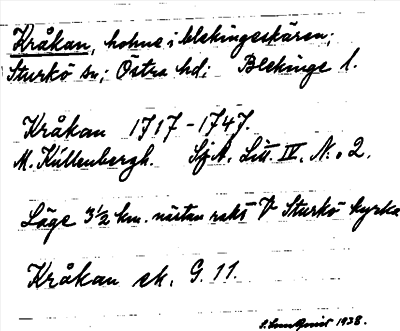 Kråkan, holme i blekingeskären;
Sturkö sn; Östra hd; Blekinge l.
Kråkan 1717-1747.
M. Küllenbergh. SjA. Litt. IV. N:o 2.
Läge 3½ km. nästan rakt V Sturkö kyrka
Kråkan sk. G. 11.
1938.